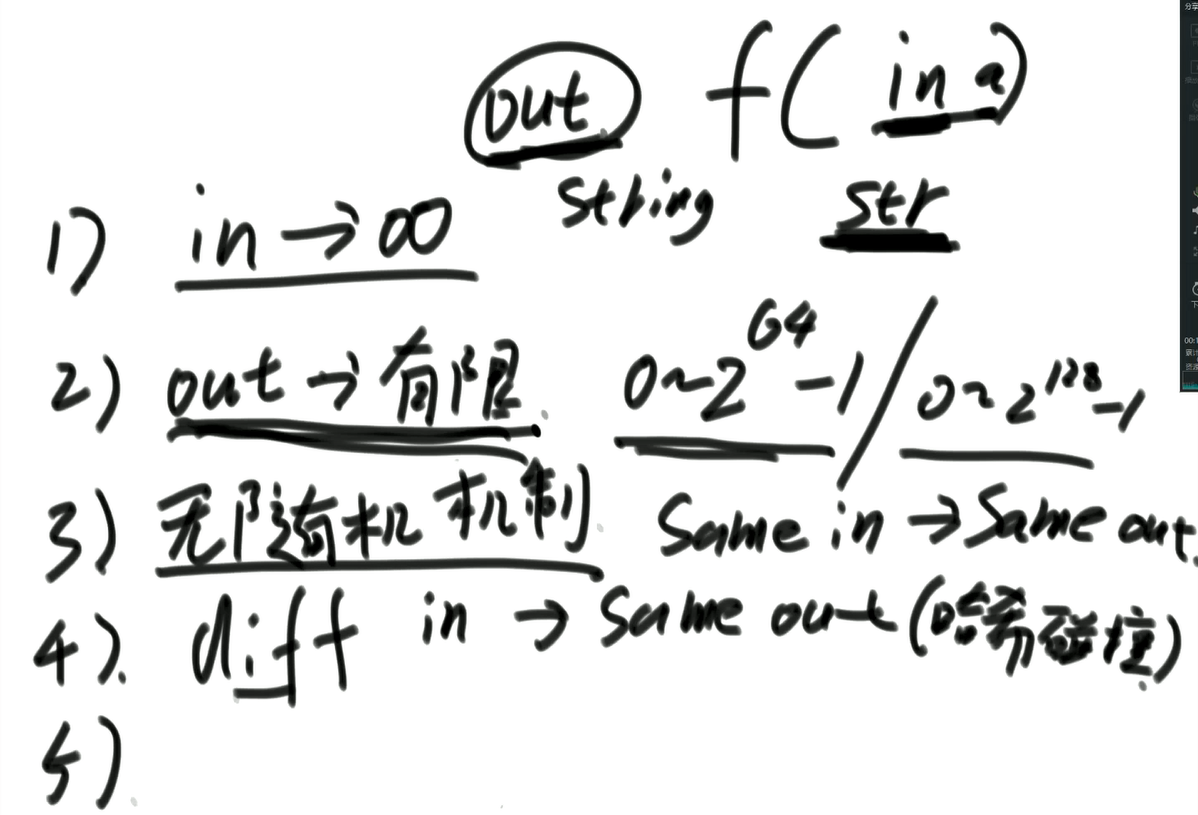 out f(in a)
string str
1) in → ∞
2) out → 有限 0~2^64-1 / 0~2^128-1
3) 无随机机制 Same in → Same out.
4). diff in → Same out (哈希碰撞)
5).